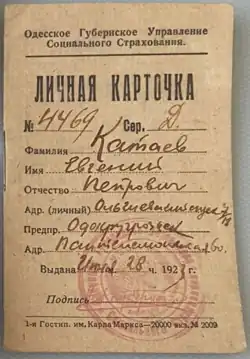 Одесское Губернское Управление
Социального Страхования.
ЛИЧНАЯ КАРТОЧКА
№ 4469 Сер. Д.
Фамилия Катаев
Имя Евгений
Отчество Петрович
Адр. (личный)
Предпр.
Адр.
Выдана 28 ч. 192
Подпись
1-я Гостип. им. Карла Маркса—20000 экз. № 2009